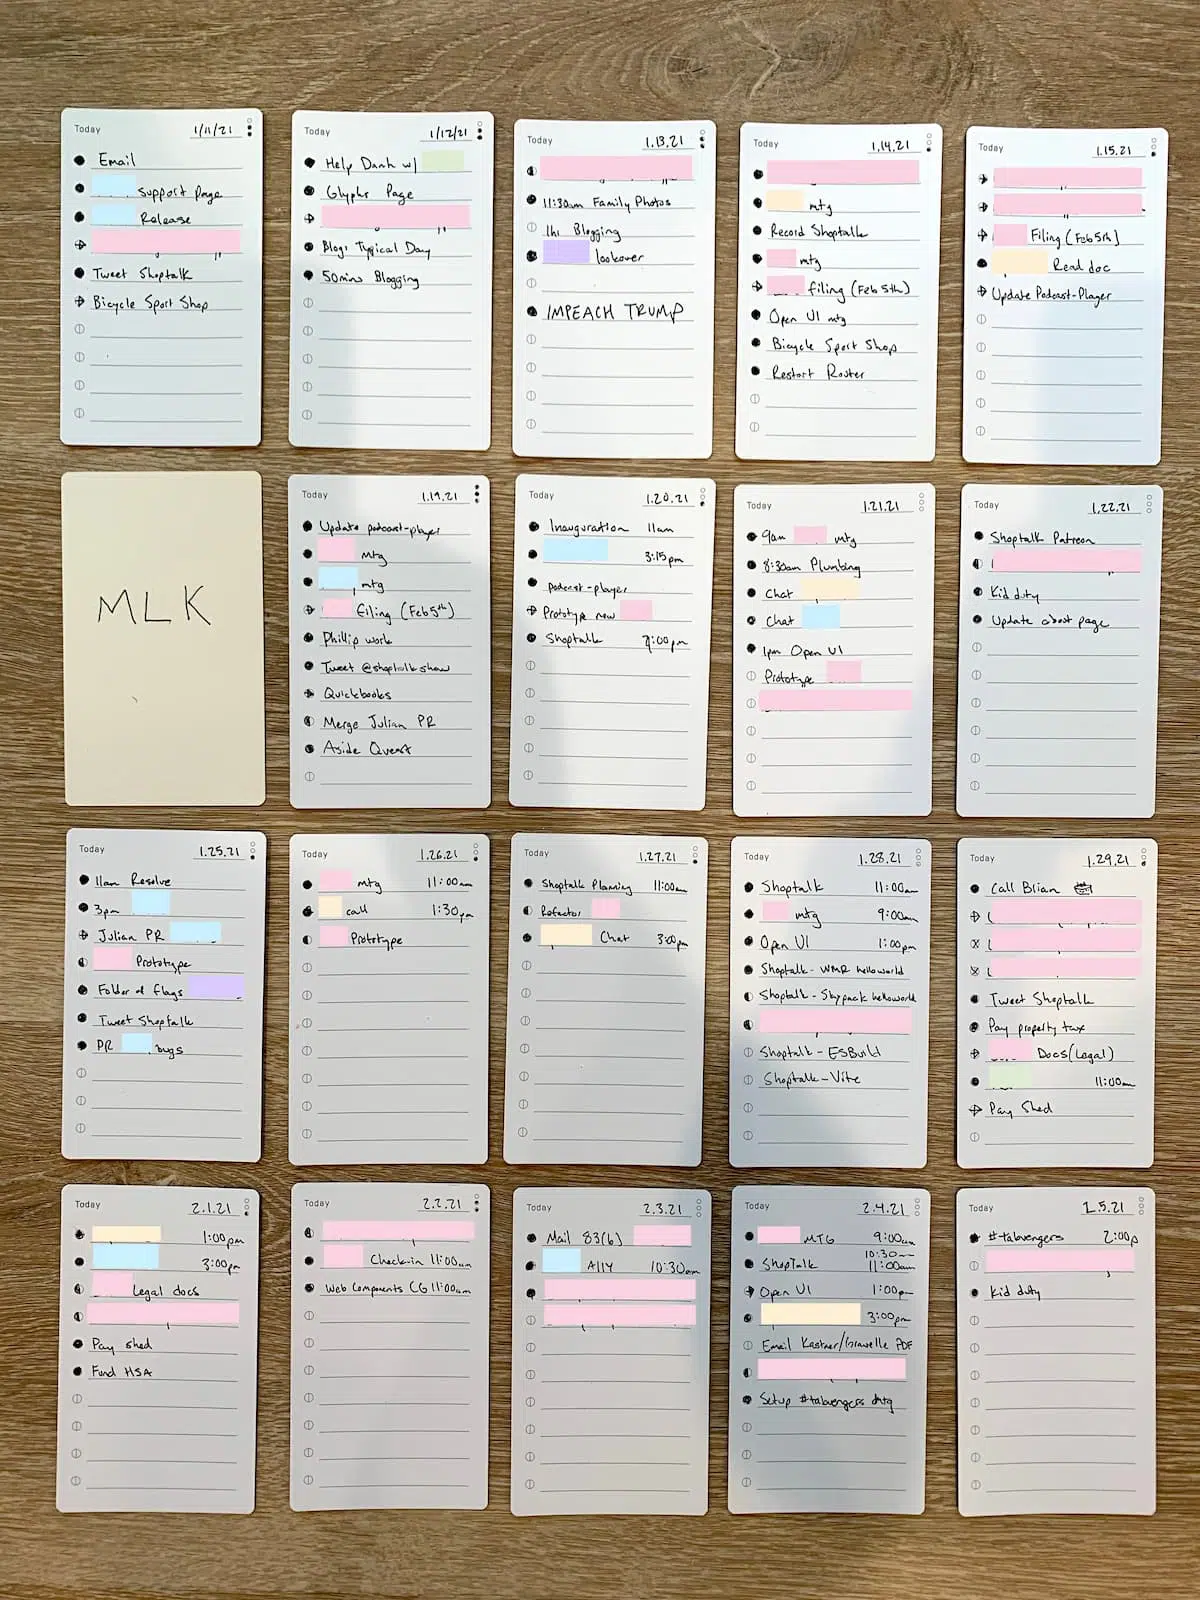 Today 1/11/21
Email
Support page
Release
Tweet Shoptalk
Bicycle Sport Shop
Today 1/12/21
Help Dank w/
Glyphs Page
Blog: Typical Day
50mins Blogging
Today 1.13.21
11:30am Family Photos
1hr Blogging
lookover
IMPEACH TRUMP
Today 1.14.21
mtg
Record Shoptalk
mtg
filing (Feb 5th)
Open UI mtg
Bicycle Sport Shop
Restart Router
Today 1.15.21
Filing (Feb 5th)
Read doc
Update Podcast-Player
MLK
Today 1.19.21
Update podcast-player
Mtg
mtg
Filing (Feb 5th)
Phillip work
Tweet @shoptalkshow
Quickbooks
Merge Julian PR
Aside Quest
Today 1.20.21
Inauguration 11am
3:15pm
podcast-player
Prototype new
Shoptalk 2:00pm
Today 1.21.21
9am mtg
8:30am Plumbing
Chat
Chat
1pm Open UI
Prototype
Today 1.22.21
Shoptalk Patreon
Kid duty
Update about page
Today 1.25.21
11am Resolve
3pm
Julian PR
Prototype
Folder of flags
Tweet Shoptalk
PR bugs
Today 1.26.21
mtg 11:00am
call 1:30pm
Prototype
Today 1.27.21
Shoptalk Planning 11:00am
Refactor
Chat 3:00pm
Today 1.28.21
Shoptalk 11:00am
mtg 9:00am
Open UI 1:00pm
Shoptalk - WMR helloworld
Shoptalk - Skypack helloworld
Shoptalk - ESBuild
Shoptalk - Vite
Today 1.29.21
Call Brian
Tweet Shoptalk
Pay property tax
Docs (Legal)
11:00am
Pay Shed
Today 2.1.21
1:00pm
3:00pm
Legal docs
Pay shed
Fund HSA
Today 2.2.21
Check-in 11:00am
Web Components CG 11:00am
Today 2.3.21
Mail 83(b)
A11Y 10:30am
Today 2.4.21
MTG 9:00am
10:30
ShopTalk 11:00am
Open UI 1:00pm
3:00pm
Email Kastner/Gravelle PDF
Setup #tabvengers mtg
Today 2.5.21
#tabvengers 2:00p
Kid duty